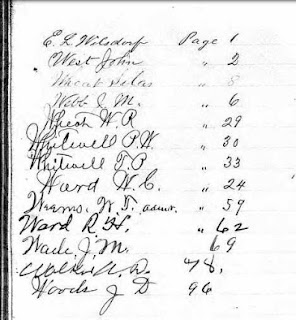 E. L. Wilsdorf Page 1
West John " 2
Wheat Silas " 5
Webb J. M. " 6
Wheat W. R. " 29
Whitwell P. W. " 30
Whitwell T. P. " 33
Ward W. C. " 24
Weems W. T. admr. " 59
Ward R. H. " 62
Wade J. M. 69
W. D. 78.
Woods J D 96